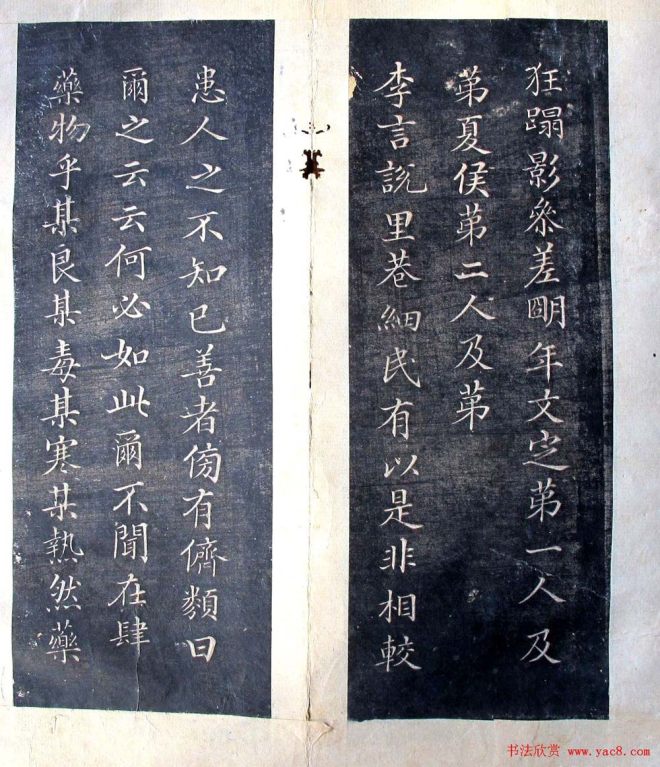 狂蹋影參差明年文定第一人及
第夏侯第二人及第
李言說里巷細民有以是非相較
患人之不知已善者傍有儕類曰
爾之云云何必如此爾不聞在肆
藥物乎某良某毒某寒某熱然藥
书法欣赏 www.yac8.com